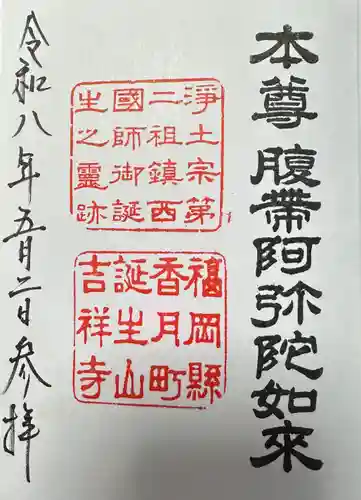 本尊 腹帶阿弥陀如來
淨土宗第
二祖鎮西
國師御誕
生之靈跡
福岡縣
香月町
誕生山
吉祥寺
令和八年五月二日参拝